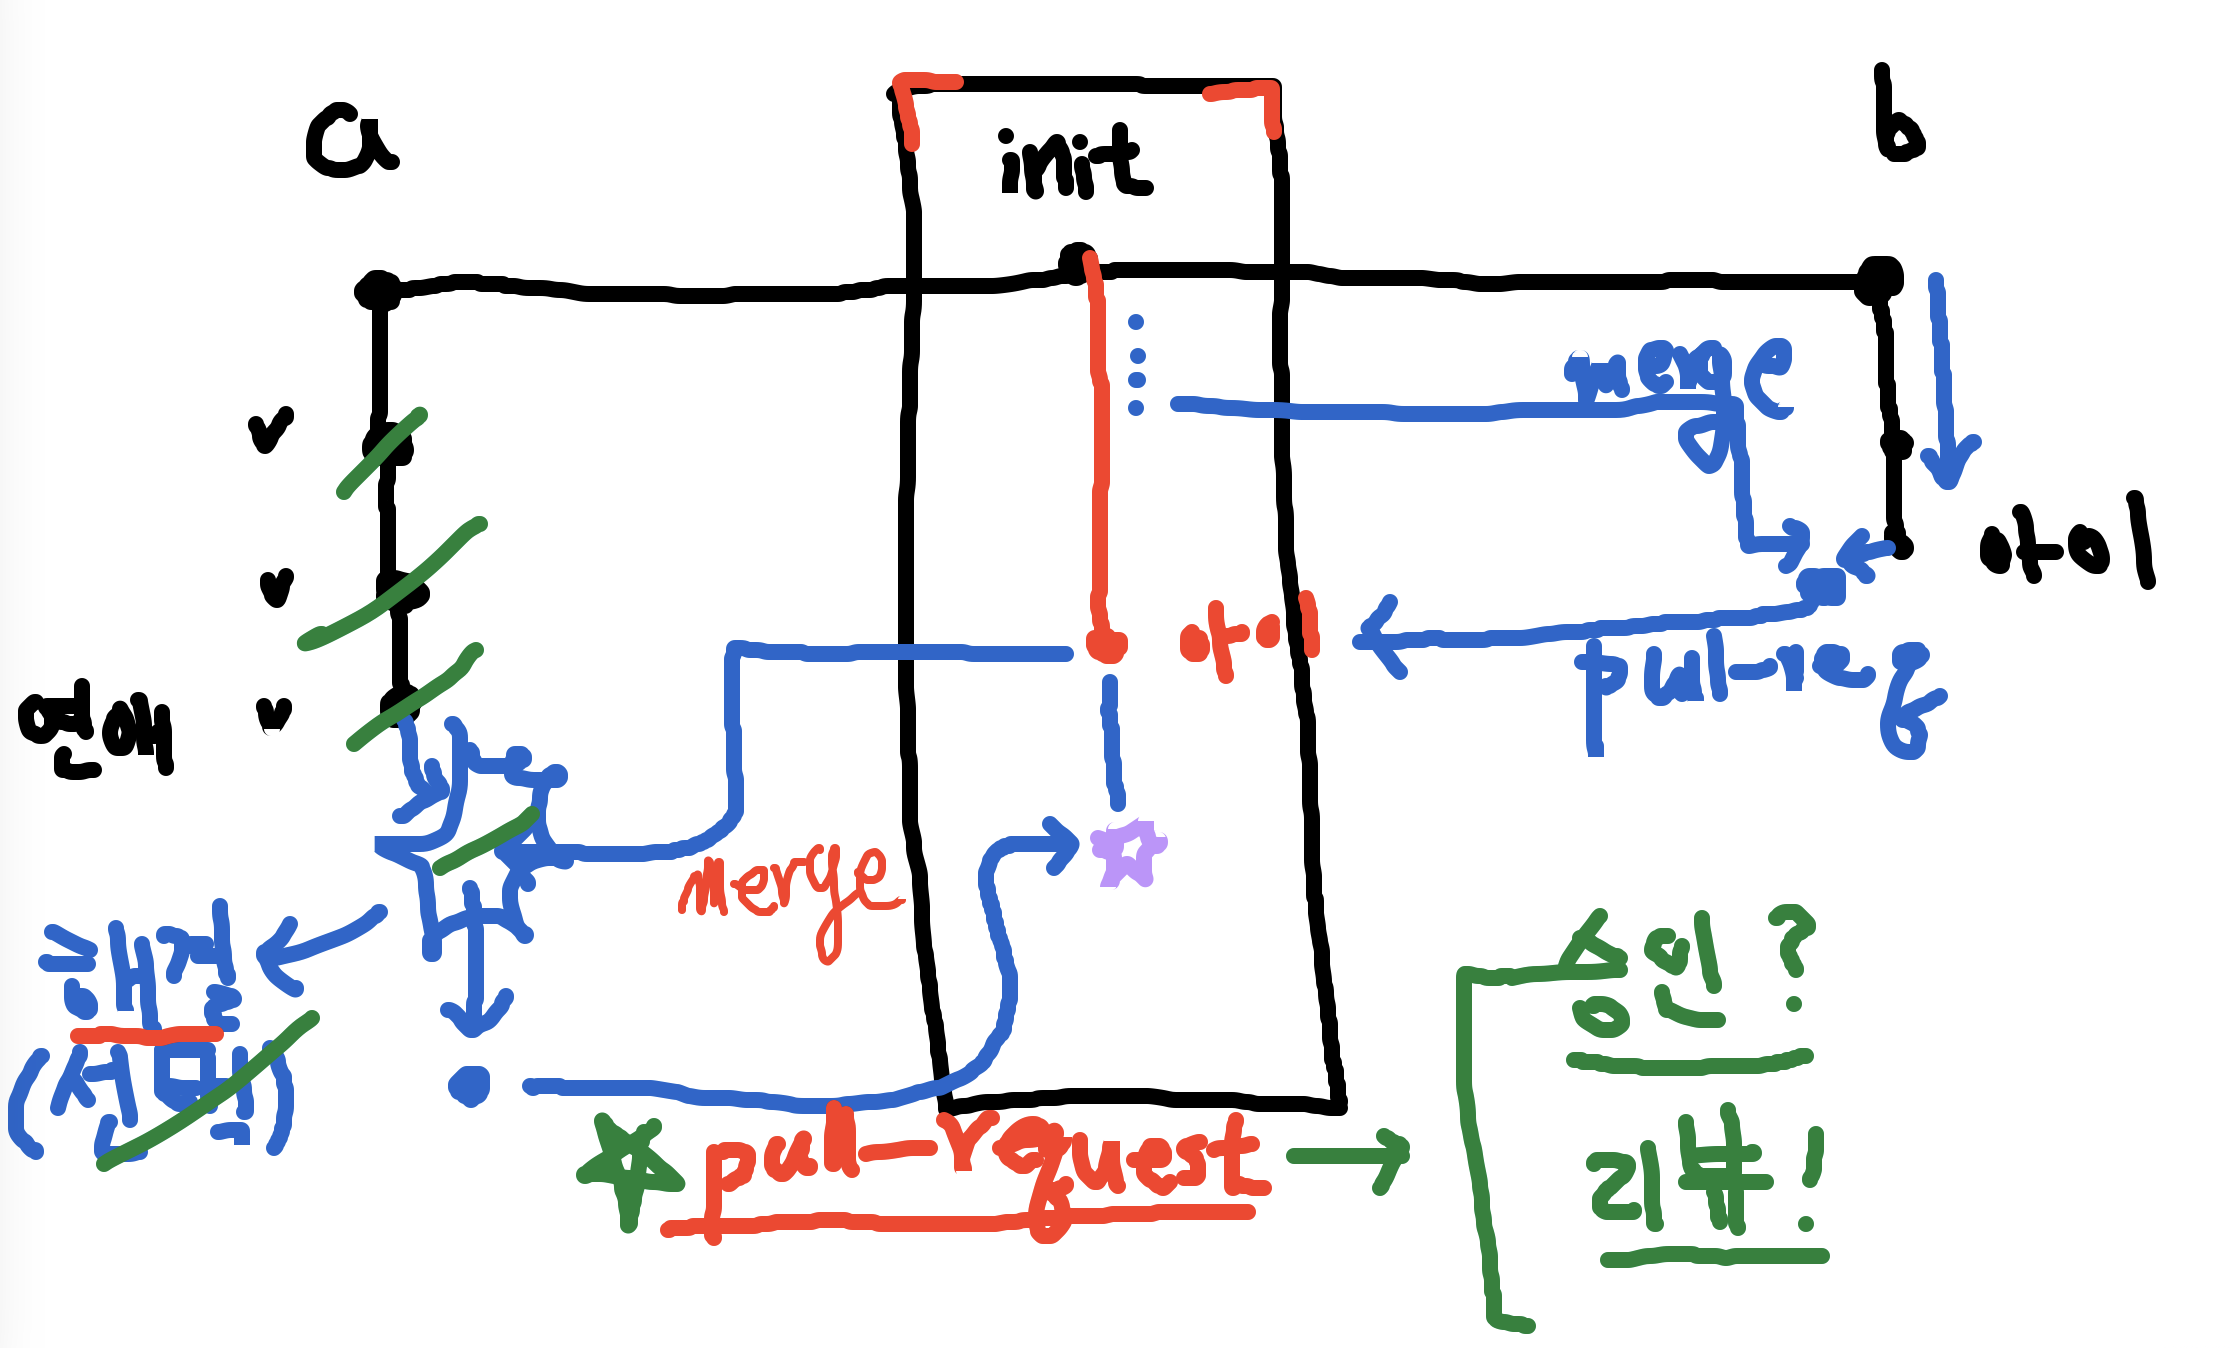 a
init
b
v
merge
아이
v
아이
pull-req
연애
v
merge
해결
(선몰빵)
승인?
pull-request
리뷰!